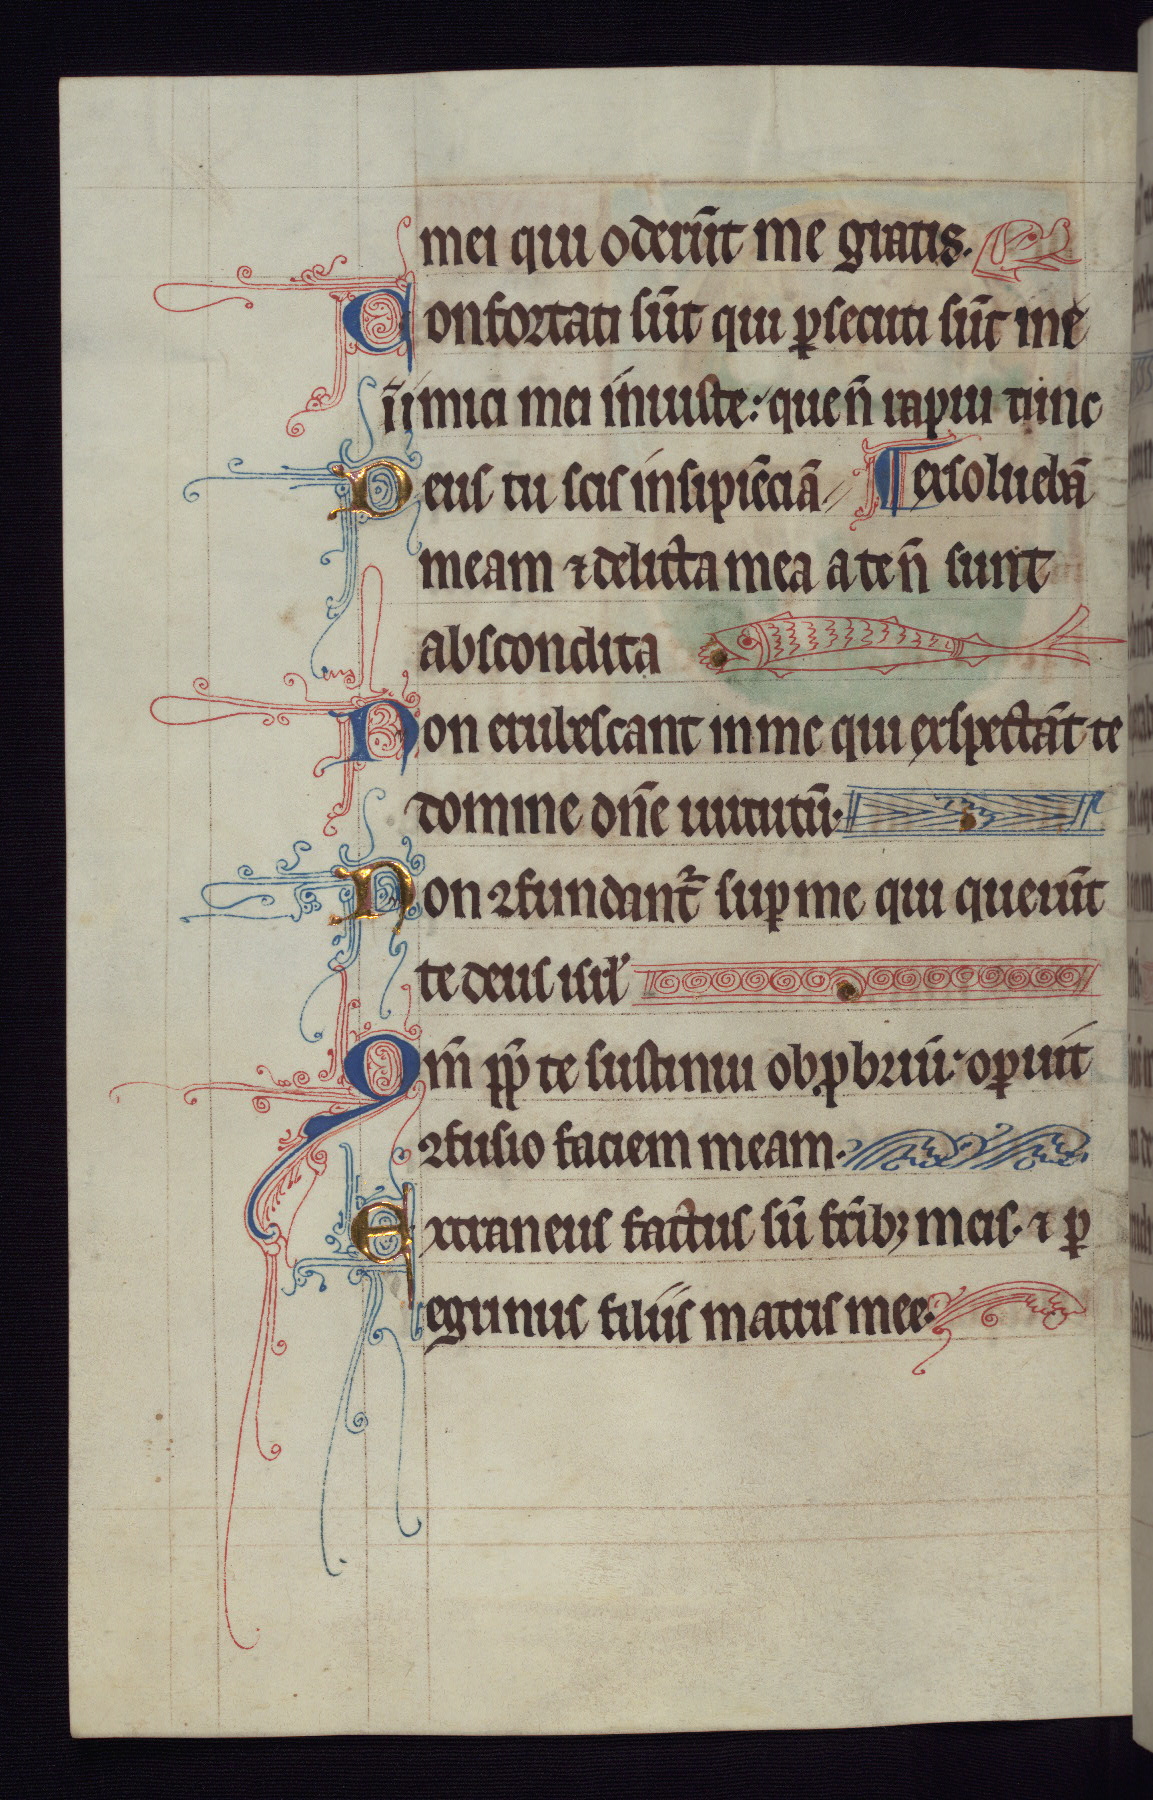 mei qui oderūt me gratis.
Confortati sūt qui ꝑsecuti sūt me
īimici mei iniuste: que ñ rapui tunc
Deus tu scis insipiēciā // exsoluebā
meam ⁊ delicta mea a te ñ sunt
abscondita
Non erubescant in me qui exspectāt te
domine dñe uirtutū.
Non ꝯfundant᷑ suꝑ me qui querūt
te deus isrl̓
Qm̄ ꝓp̄ te sustinui obꝓbriū. oꝑuit
ꝯfusio faciem meam.
Extraneus factus sū frībꝫ meis. ⁊ ꝑ
egrinus filiis matris mee.